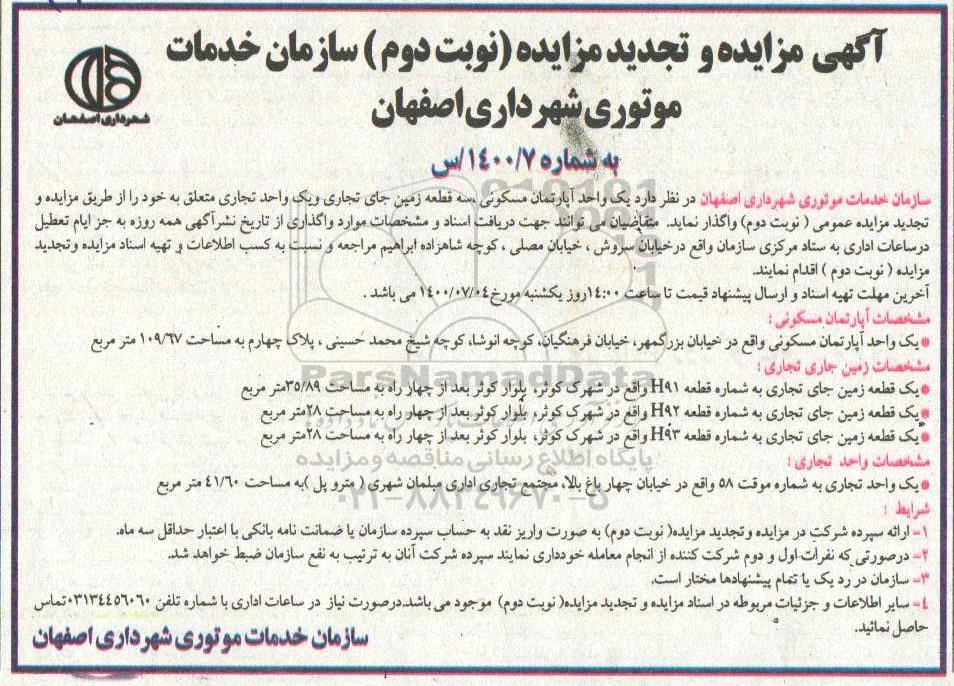 آگهی مزایده و تجدید مزایده (نوبت دوم) سازمان خدمات
موتوری شهرداری اصفهان
شهرداری اصفهان
به شماره ۱۴۰۰/۷/س
سازمان خدمات موتوری شهرداری اصفهان در نظر دارد یک واحد آپارتمان مسکونی ،سه قطعه زمین جای تجاری ویک واحد تجاری متعلق به خود را از طریق مزایده و
تجدید مزایده عمومی ( نوبت دوم) واگذار نماید. متقاضیان می توانند جهت دریافت اسناد و مشخصات موارد واگذاری از تاریخ نشرآگهی همه روزه به جز ایام تعطیل
درساعات اداری به ستاد مرکزی سازمان واقع درخیابان سروش ، خیابان مصلی ، کوچه شاهزاده ابراهیم مراجعه و نسبت به کسب اطلاعات و تهیه اسناد مزایده وتجدید
مزایده ( نوبت دوم ) اقدام نمایند.
آخرین مهلت تهیه اسناد و ارسال پیشنهاد قیمت تا ساعت ۱۴:۰۰روز یکشنبه مورخ ۱۴۰۰/۰۷/۰۴ می باشد .
مشخصات آپارتمان مسکونی :
*یک واحد آپارتمان مسکونی واقع در خیابان بزرگمهر، خیابان فرهنگیان، کوچه انوشا، کوچه شیخ محمد حسینی ، پلاک چهارم به مساحت ۱۰۹/۶۷ متر مربع
مشخصات زمین جاری تجاری :
*یک قطعه زمین جای تجاری به شماره قطعه H۹۱ واقع در شهرک کوثر، بلوار کوثر بعد از چهار راه به مساحت ۳۵/۸۹متر مربع
*یک قطعه زمین جای تجاری به شماره قطعه H۹۲ واقع در شهرک کوثر، بلوار کوثر بعد از چهار راه به مساحت ۲۸متر مربع
*یک قطعه زمین جای تجاری به شماره قطعه H۹۳ واقع در شهرک کوثر، بلوار کوثر بعد از چهار راه به مساحت ۲۸متر مربع
مشخصات واحد تجاری :
*یک واحد تجاری به شماره موقت ۵۸ واقع در خیابان چهار باغ بالا، مجتمع تجاری اداری مبلمان شهری ( مترو پل )به مساحت ۴۱/۶۰ متر مربع
شرایط :
۱- ارائه سپرده شرکت در مزایده وتجدید مزایده( نوبت دوم) به صورت واریز نقد به حساب سپرده سازمان یا ضمانت نامه بانکی با اعتبار حداقل سه ماه.
۲- درصورتی که نفرات اول و دوم شرکت کننده از انجام معامله خودداری نمایند سپرده شرکت آنان به ترتیب به نفع سازمان ضبط خواهد شد.
۳- سازمان در رد یک یا تمام پیشنهادها مختار است.
۴- سایر اطلاعات و جزئیات مربوطه در اسناد مزایده و تجدید مزایده( نوبت دوم) موجود می باشد.درصورت نیاز در ساعات اداری با شماره تلفن ۰۳۱۳۴۴۵۶۰۶۰تماس
حاصل نمائید.
سازمان خدمات موتوری شهرداری اصفهان
ParsNamadData
پایگاه اطلاع رسانی مناقصه و مزایده
۰۲۱-۸۸۳۴۹۶۷۰-۵